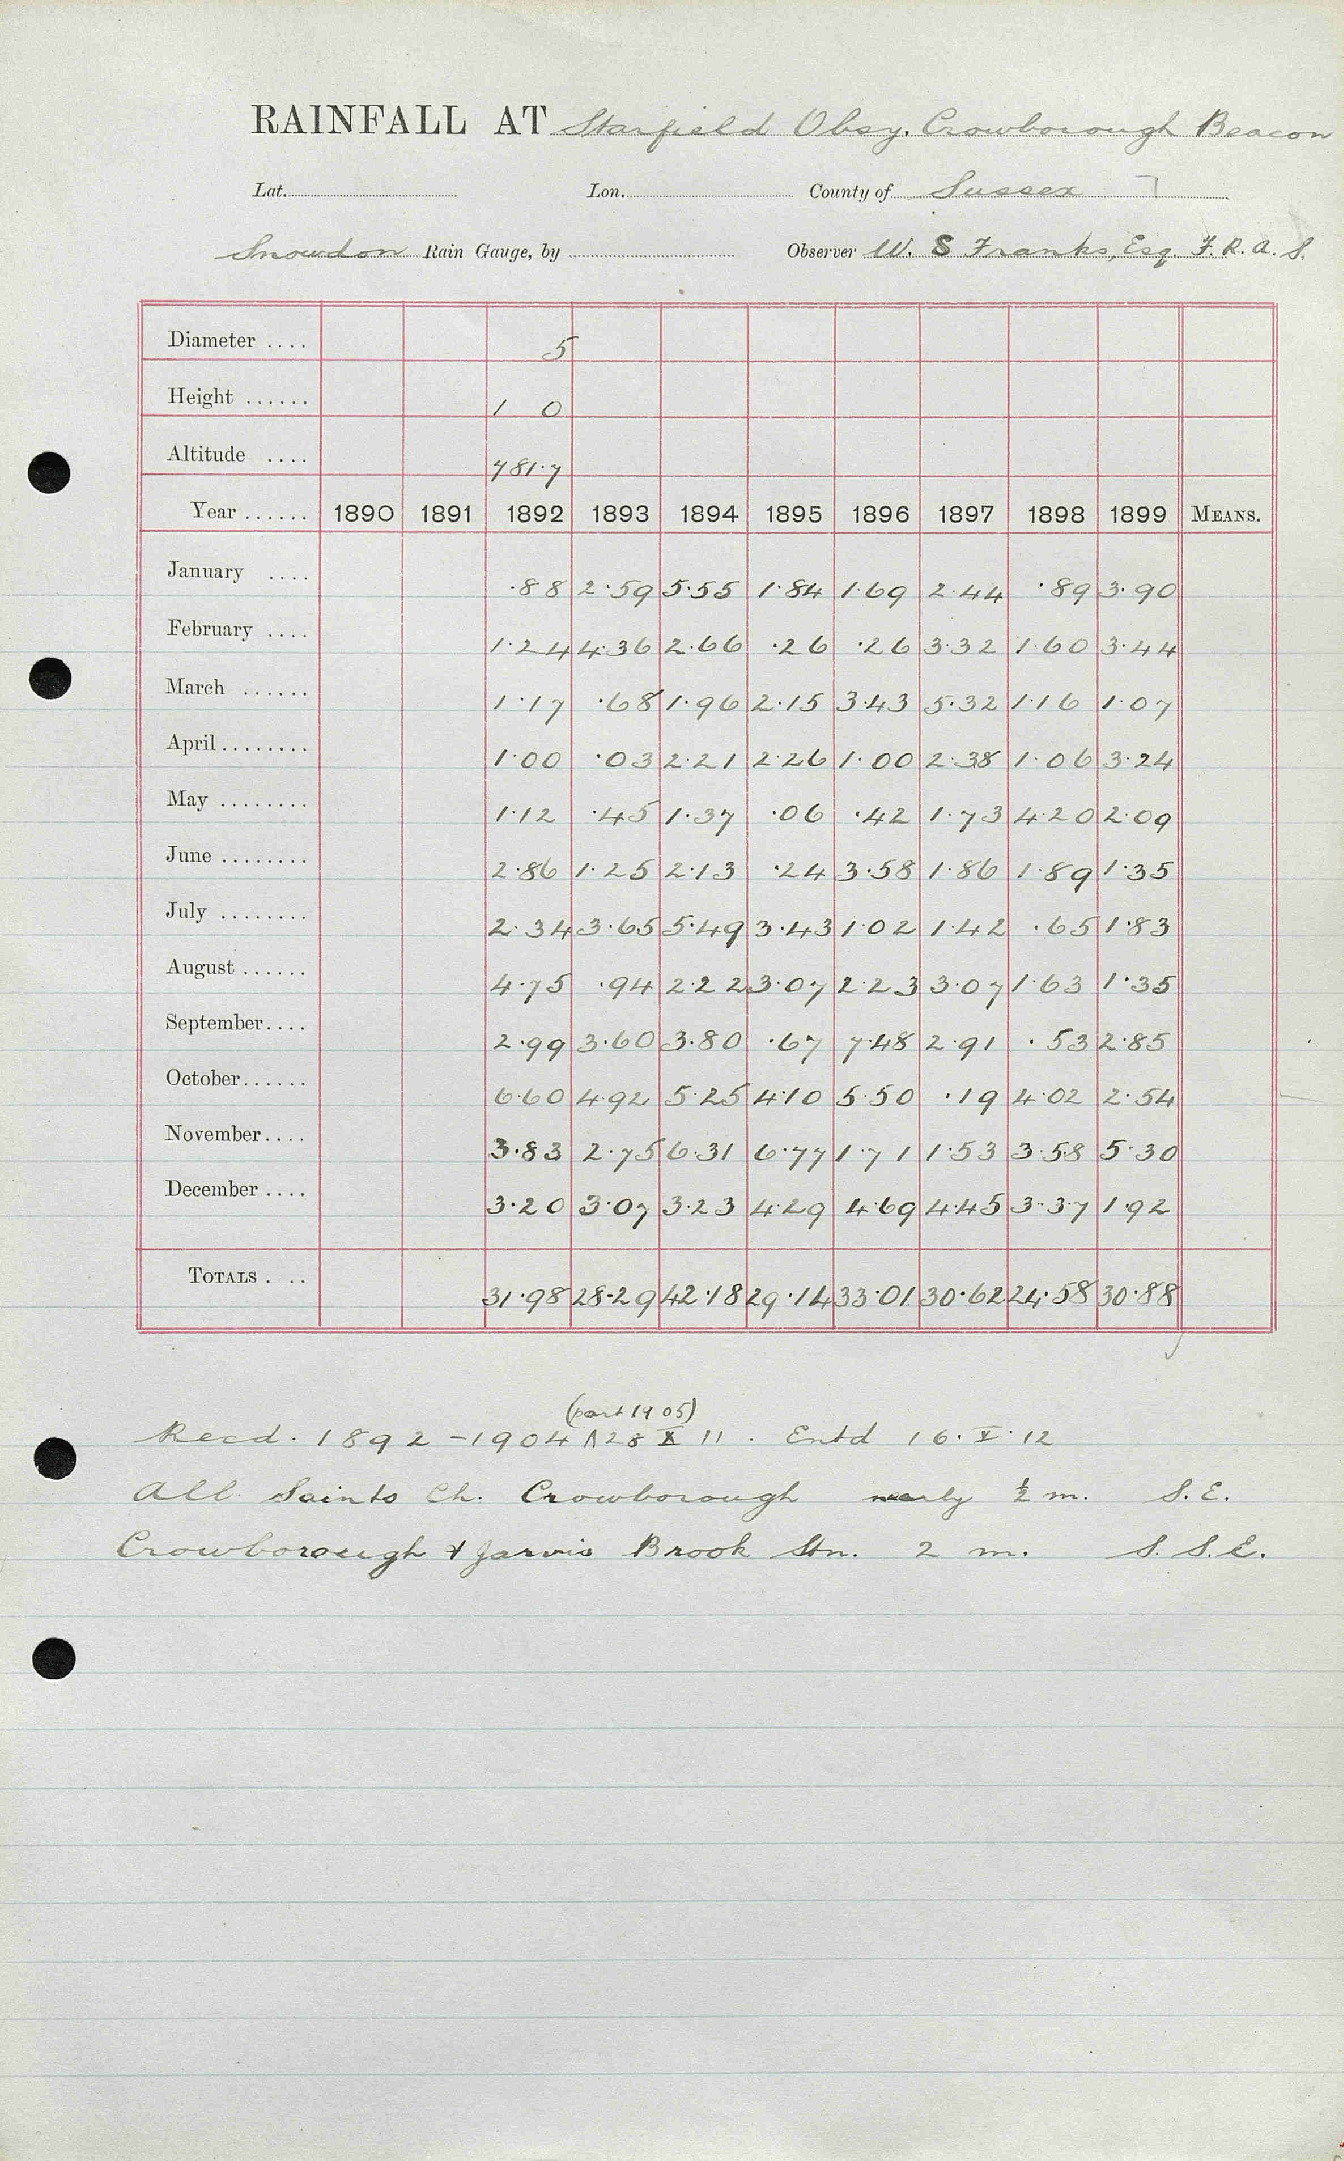 RAINFALL AT Starfield Obsy. Crowborough Beacon
Lat. Lon. County of Sussex
Snowdon Rain Gauge, by Observer W. S Franks, Esq. F. R. A. S.
Diameter .... 5
Height ...... 1 0
Altitude .... 781.7
Year ...... 1890 1891 1892 1893 1894 1895 1896 1897 1898 1899 MEANS.
January .... .88 2.59 5.55 1.84 1.69 2.44 .89 3.90
February .... 1.24 4.36 2.66 .26 .26 3.32 1.60 3.44
March ...... 1.17 .68 1.96 2.15 3.43 5.32 1.16 1.07
April ........ 1.00 .03 2.21 2.26 1.00 2.38 1.06 3.24
May ........ 1.12 .45 1.37 .06 .42 1.73 4.20 2.09
June ........ 2.86 1.25 2.13 .24 3.58 1.86 1.89 1.35
July ........ 2.34 3.65 5.49 3.43 1.02 1.42 .65 1.83
August ...... 4.75 .94 2.22 3.07 2.23 3.07 1.63 1.35
September.... 2.99 3.60 3.80 .67 7.48 2.91 .53 2.85
October...... 6.60 4.92 5.25 4.10 5.50 .19 4.02 2.54
November.... 3.83 2.75 6.31 6.77 1.71 1.53 3.58 5.30
December .... 3.20 3.07 3.23 4.29 4.69 4.45 3.37 1.92
TOTALS . .. 31.98 28.29 42.18 29.14 33.01 30.62 24.58 30.88
(part 1905)
Recd. 1892-1904 28 X 11. Entd 16.X.12
All Saints Ch. Crowborough nearly ½ m. S.E.
Crowborough & Jarvis Brook Stn. 2 m. S.S.E.